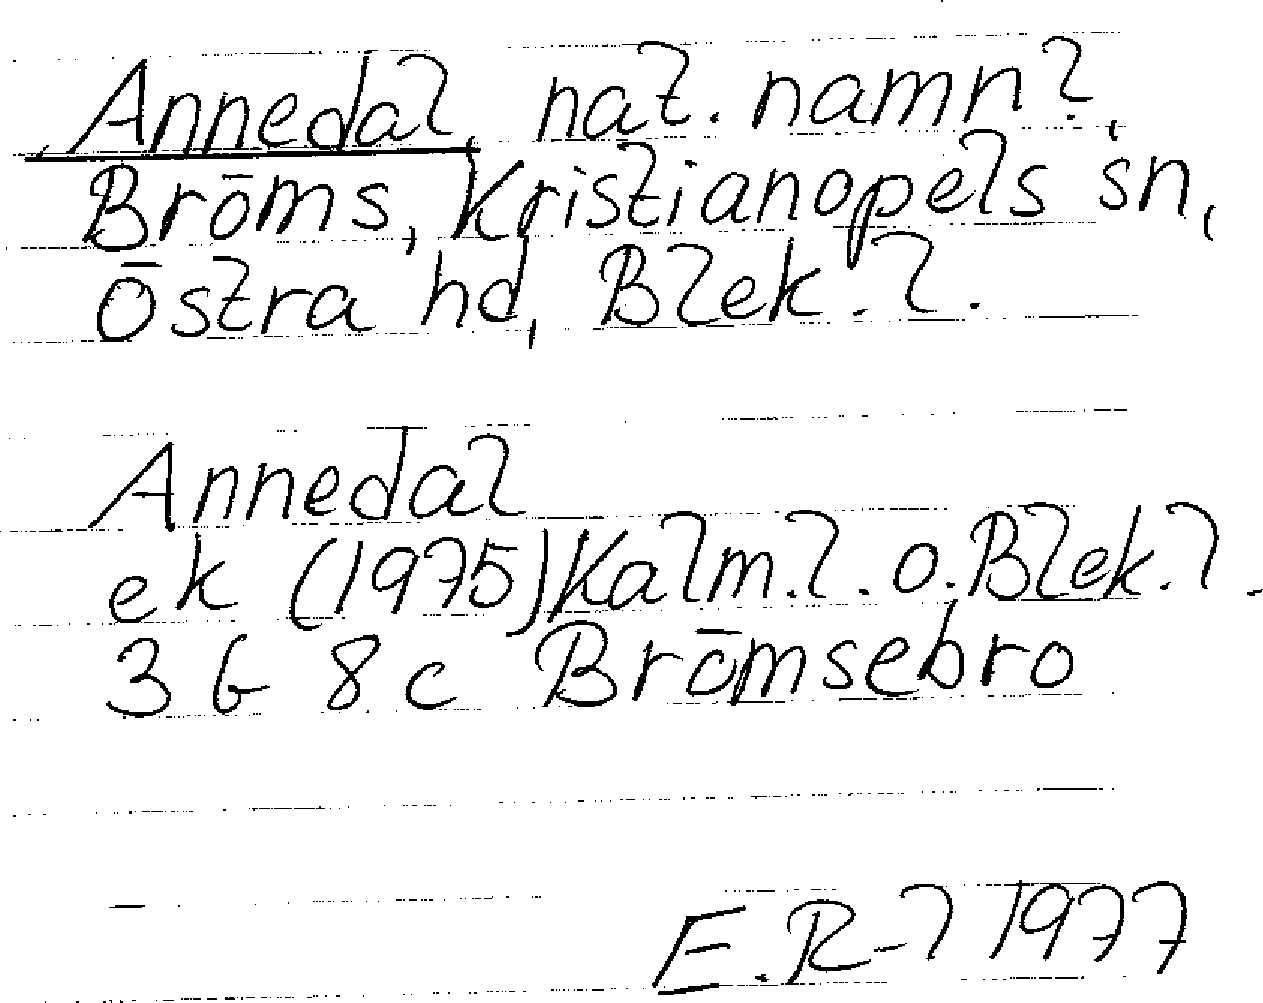 Annedal, nat. namn?,
Bröms, Kristianopels sn,
Östra hd, Blek. l.
Annedal
ek (1975) Kalm. l. o. Blek. l.
3 G 8 c Brömsebro
E. R-l 1977